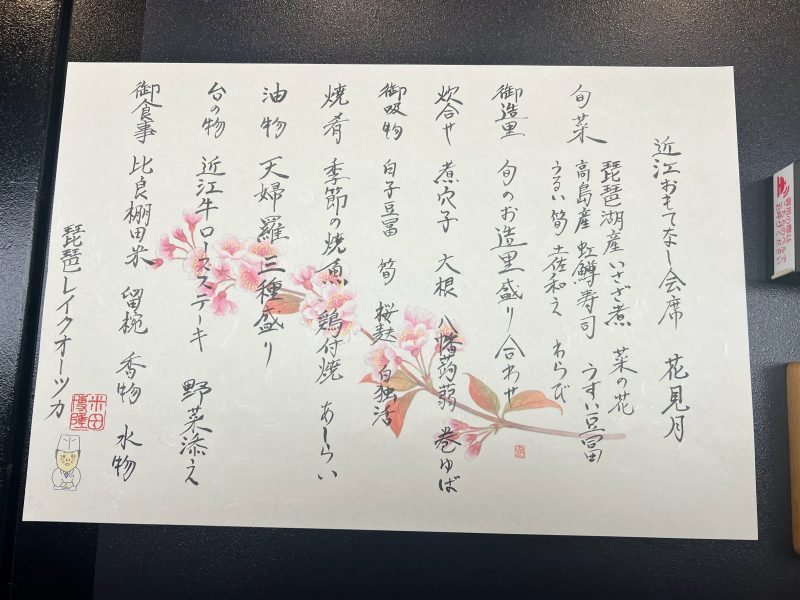 近江おもてなし会席　花見月
旬菜　琵琶湖産いさざ煮　菜の花
高島産虹鱒寿司　うすい豆冨
うるい筍土佐和え　わらび
御造里　旬のお造里盛り合わせ
炊合せ　煮穴子　大根　八幡蒟蒻　巻ゆば
御吸物　白子豆冨　筍　桜麩　白独活
焼肴　季節の焼魚　鶏付焼　あしらい
油物　天婦羅三種盛り
台の物　近江牛ロースステーキ　野菜添え
御食事　比良棚田米　留椀　香物　水物
琵琶レイクオーツカ